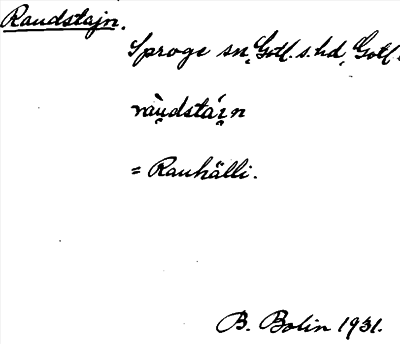 Raudstajn.
Sproge sn, Gotl. s. hd, Gotl.
ràu̯dstái̯n
= Rauhälli.
B. Bolin 1931.